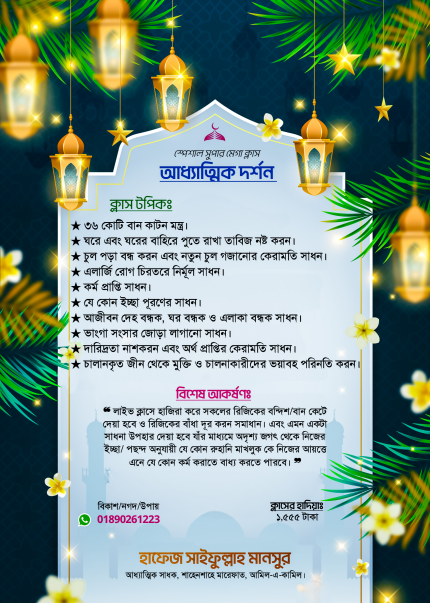 স্পেশাল সুপার মেগা ক্লাস
আধ্যাত্মিক দর্শন
ক্লাস টপিকঃ
★ ৩৬ কোটি বান কাটন মন্ত্র।
★ ঘরে এবং ঘরের বাহিরে পুতে রাখা তাবিজ নষ্ট করন।
★ চুল পড়া বন্ধ করন এবং নতুন চুল গজানোর কেরামতি সাধন।
★ এলার্জি রোগ চিরতরে নির্মূল সাধন।
★ কর্ম প্রাপ্তি সাধন।
★ যে কোন ইচ্ছা পূরণের সাধন।
★ আজীবন দেহ বন্ধক, ঘর বন্ধক ও এলাকা বন্ধক সাধন।
★ ভাংগা সংসার জোড়া লাগানো সাধন।
★ দারিদ্রতা নাশকরন এবং অর্থ প্রাপ্তির কেরামতি সাধন।
★ চালানকৃত জীন থেকে মুক্তি ও চালনাকারীদের ভয়াবহ পরিনতি করন।
বিশেষ আকর্ষণঃ
❝ লাইভ ক্লাসে হাজিরা করে সকলের রিজিকের বন্দিশ/বান কেটে
দেয়া হবে ও রিজিকের বাঁধা দূর করন সমাধান। এবং এমন একটা
সাধনা উপহার দেয়া হবে যাঁর মাধ্যমে অদৃশ্য জগৎ থেকে নিজের
ইচ্ছা/ পছন্দ অনুযায়ী যে কোন রুহানি মাখলুক কে নিজের আয়ত্তে
এনে যে কোন কর্ম করাতে বাধ্য করতে পারবে। ❞
বিকাশ/নগদ/উপায়
01890261223
ক্লাসের হাদিয়াঃ
১,৫৫৫ টাকা
হাফেজ সাইফুল্লাহ মানসুর
আধ্যাত্মিক সাধক, শাহেনশাহে মারেফাত, আমিল-এ-কামিল।